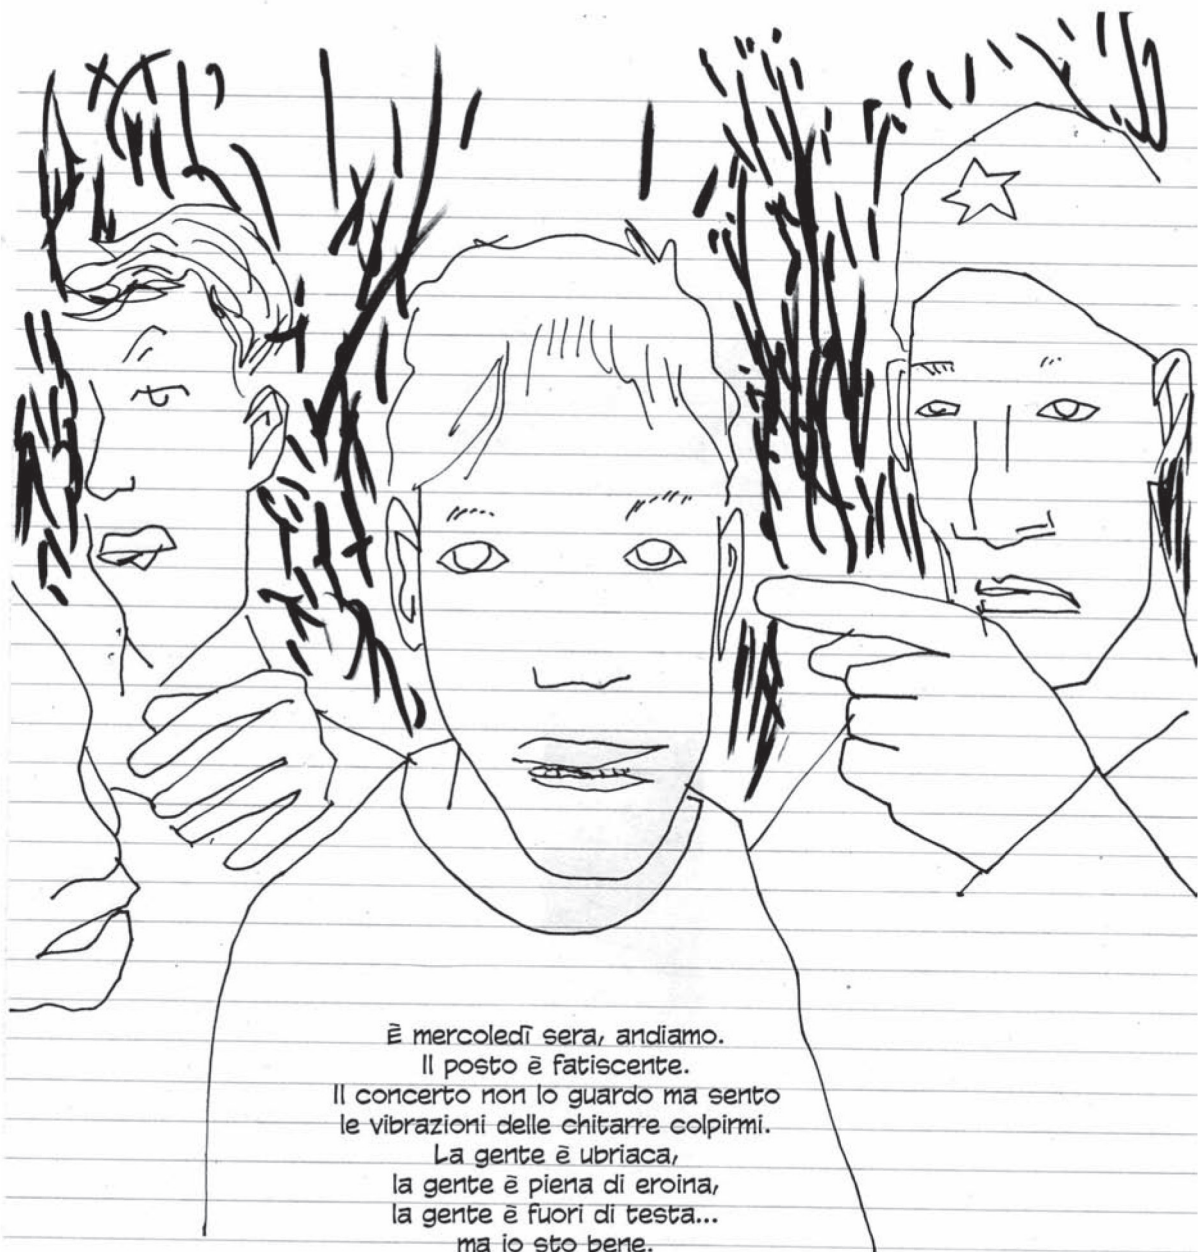 È mercoledì sera, andiamo.
Il posto è fatiscente.
Il concerto non lo guardo ma sento
le vibrazioni delle chitarre colpirmi.
La gente è ubriaca,
la gente è piena di eroina,
la gente è fuori di testa...
ma io sto bene.